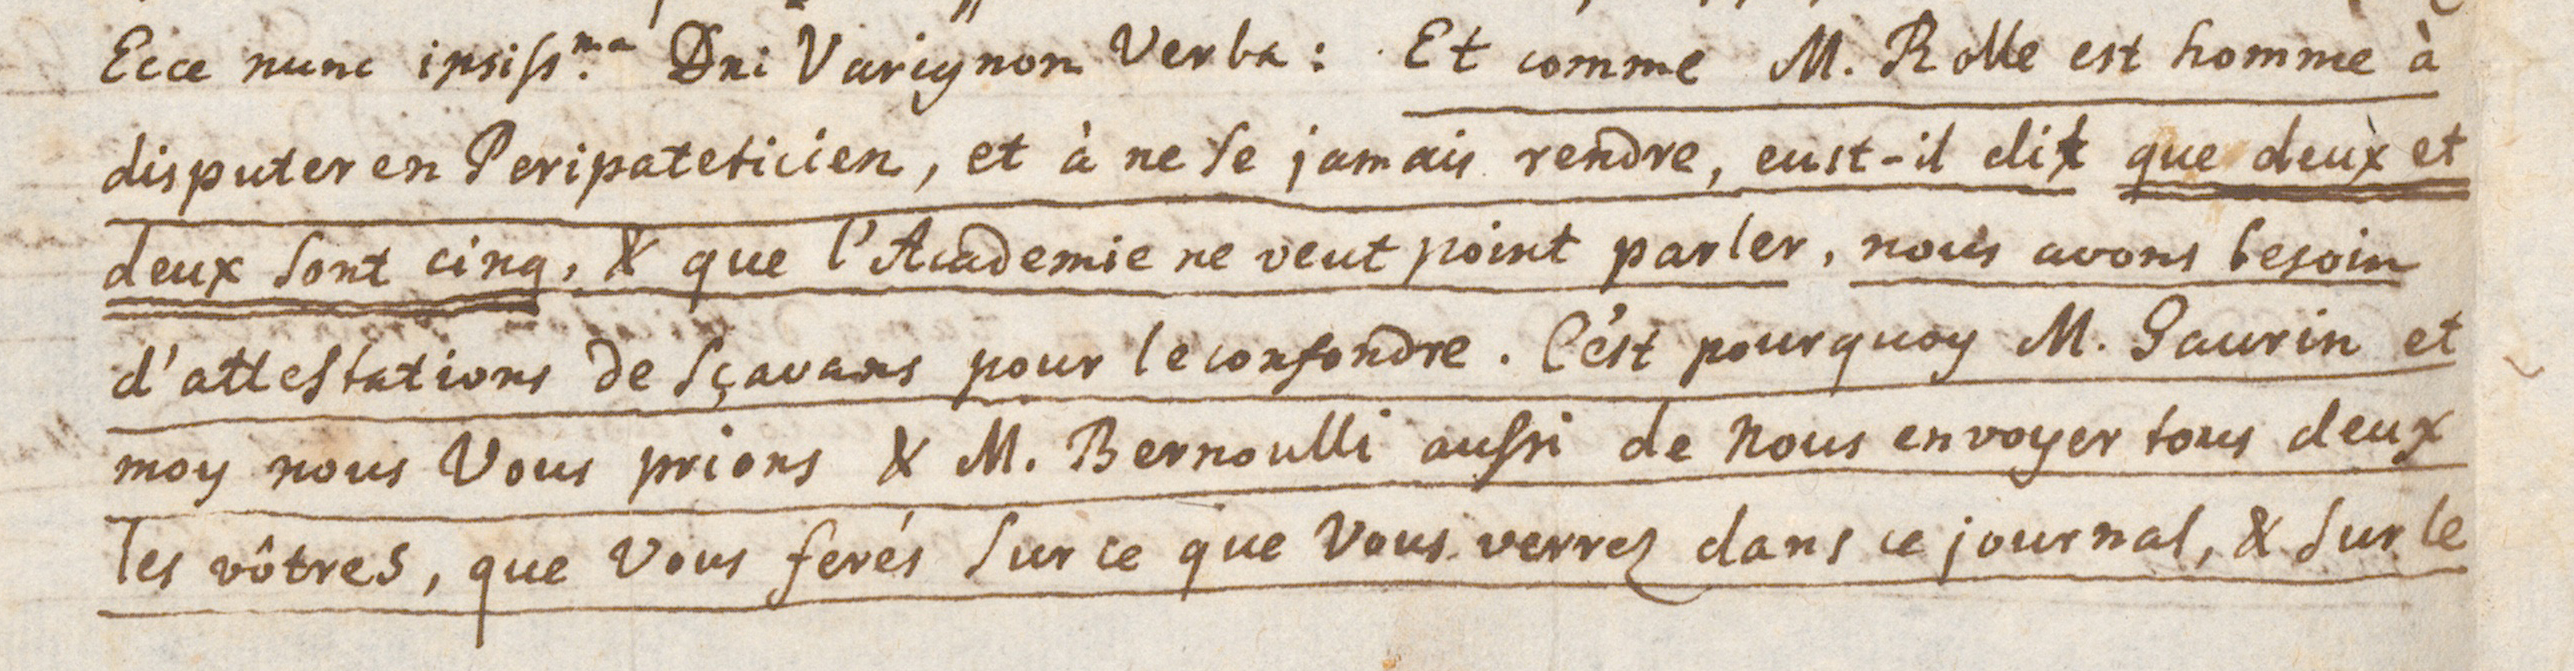 Ecce nunc ipsiss.ma Dni Varignon Verba: Et comme M. Rolle est homme à
disputer en Peripateticien, et à ne se jamais rendre, eust-il dit que deux et
deux sont cinq, & que l'Academie ne veut point parler, nous avons besoin
d'attestations de sçavans pour le confondre. C'est pourquoy M. Saurin et
moy nous Vous prions & M. Bernoulli aussi de Nous envoyer tous deux
les vôtres, que Vous ferés sur ce que Vous verrez dans ce journal, & sur le